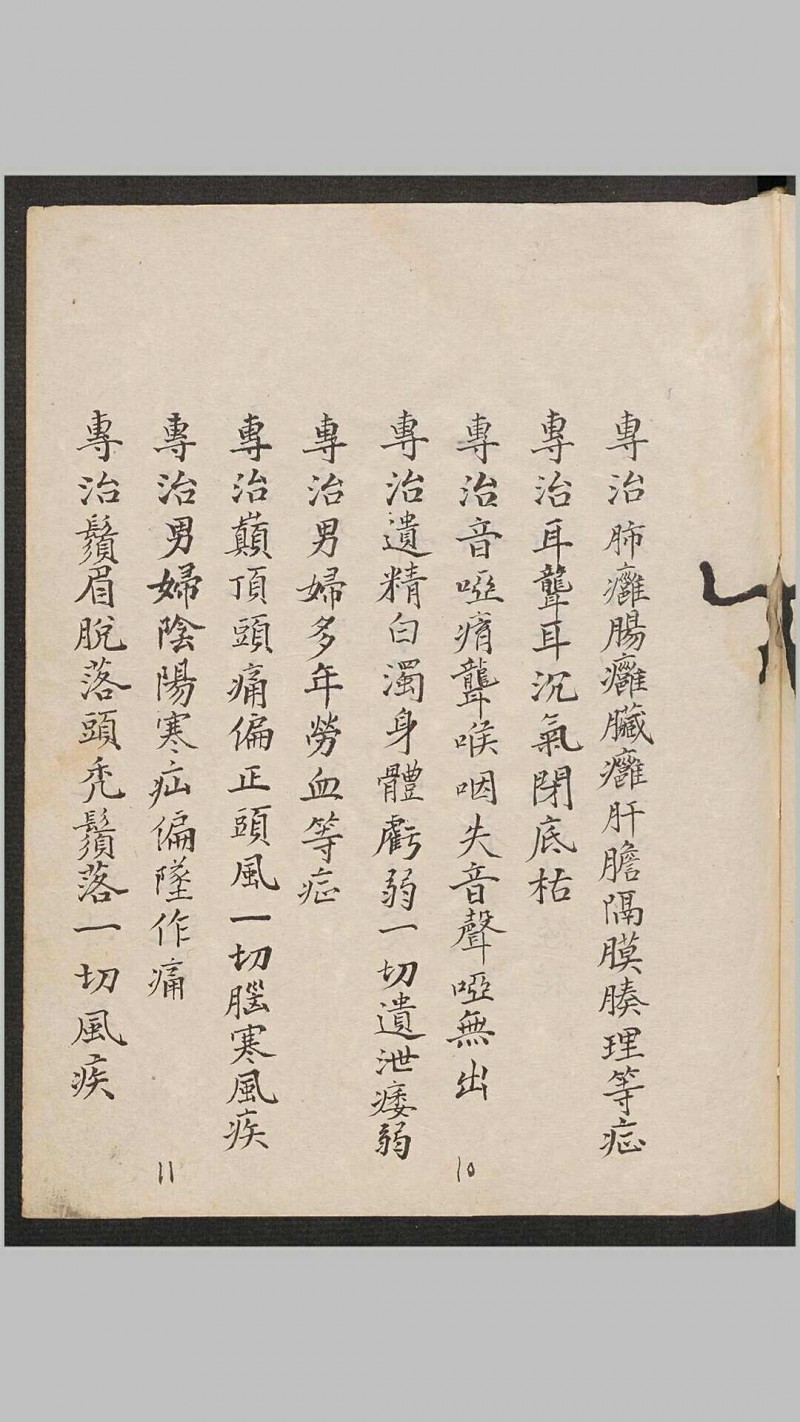 專治肺癰腸癰臟癰肝膽隔膜腠理等症
專治耳聾耳沉氣閉底枯
專治音啞瘖聾喉咽失音聲啞無出
專治遺精白濁身體虧弱一切遺泄痿弱
專治男婦多年勞血等症
專治巔頂頭痛偏正頭風一切腦寒風疾
專治男婦陰陽寒疝偏墜作痛
專治鬚眉脫落頭禿鬚落一切風疾
10
11